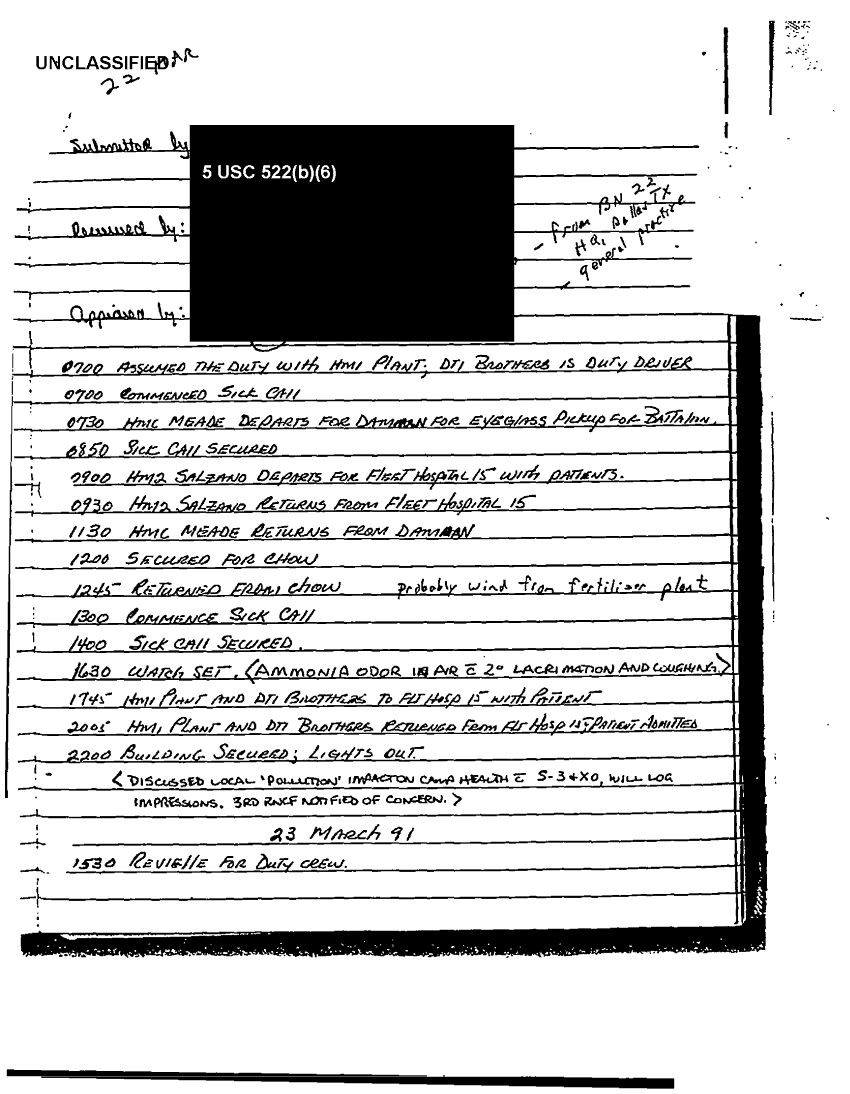 UNCLASSIFIED
22 MAR
Submitted by
5 USC 522(b)(6)
- From BN 22
HQ, Dallas TX
- general practice
by:
by:
0700 ASSUMED THE DUTY WITH HM1 PLANT; DT1 BROTHERS IS DUTY DRIVER
0700 COMMENCED SICK CALL
0730 HMC MEADE DEPARTS FOR DAMMAN FOR EYEGLASS PICKUP FOR BATTALION.
0850 SICK CALL SECURED
0900 HM2 SALZANO DEPARTS FOR FLEET HOSPITAL 15 WITH PATIENTS.
0930 HM2 SALZANO RETURNS FROM FLEET HOSPITAL 15
1130 HMC MEADE RETURNS FROM DAMMAN
1200 SECURED FOR CHOW
1245 RETURNED FROM CHOW probably wind from fertilizer plant
1300 COMMENCE SICK CALL
1400 SICK CALL SECURED.
1630 WATCH SET. <AMMONIA ODOR IN AIR C̄ 2° LACRIMATION AND COUGHING.>
1745 HM1 PLANT AND DT1 BROTHERS TO FLT HOSP 15 WITH PATIENT
2005 HM1 PLANT AND DT1 BROTHERS RETURNED FROM FLT HOSP 15; PATIENT ADMITTED
2200 BUILDING SECURED; LIGHTS OUT.
< DISCUSSED LOCAL 'POLLUTION' IMPACT ON CAMP HEALTH C̄ S-3 & XO, WILL LOG
IMPRESSIONS. 3RD RNCF NOTIFIED OF CONCERN. >
23 MARCH 91
1530 REVIELLE FOR DUTY CREW.